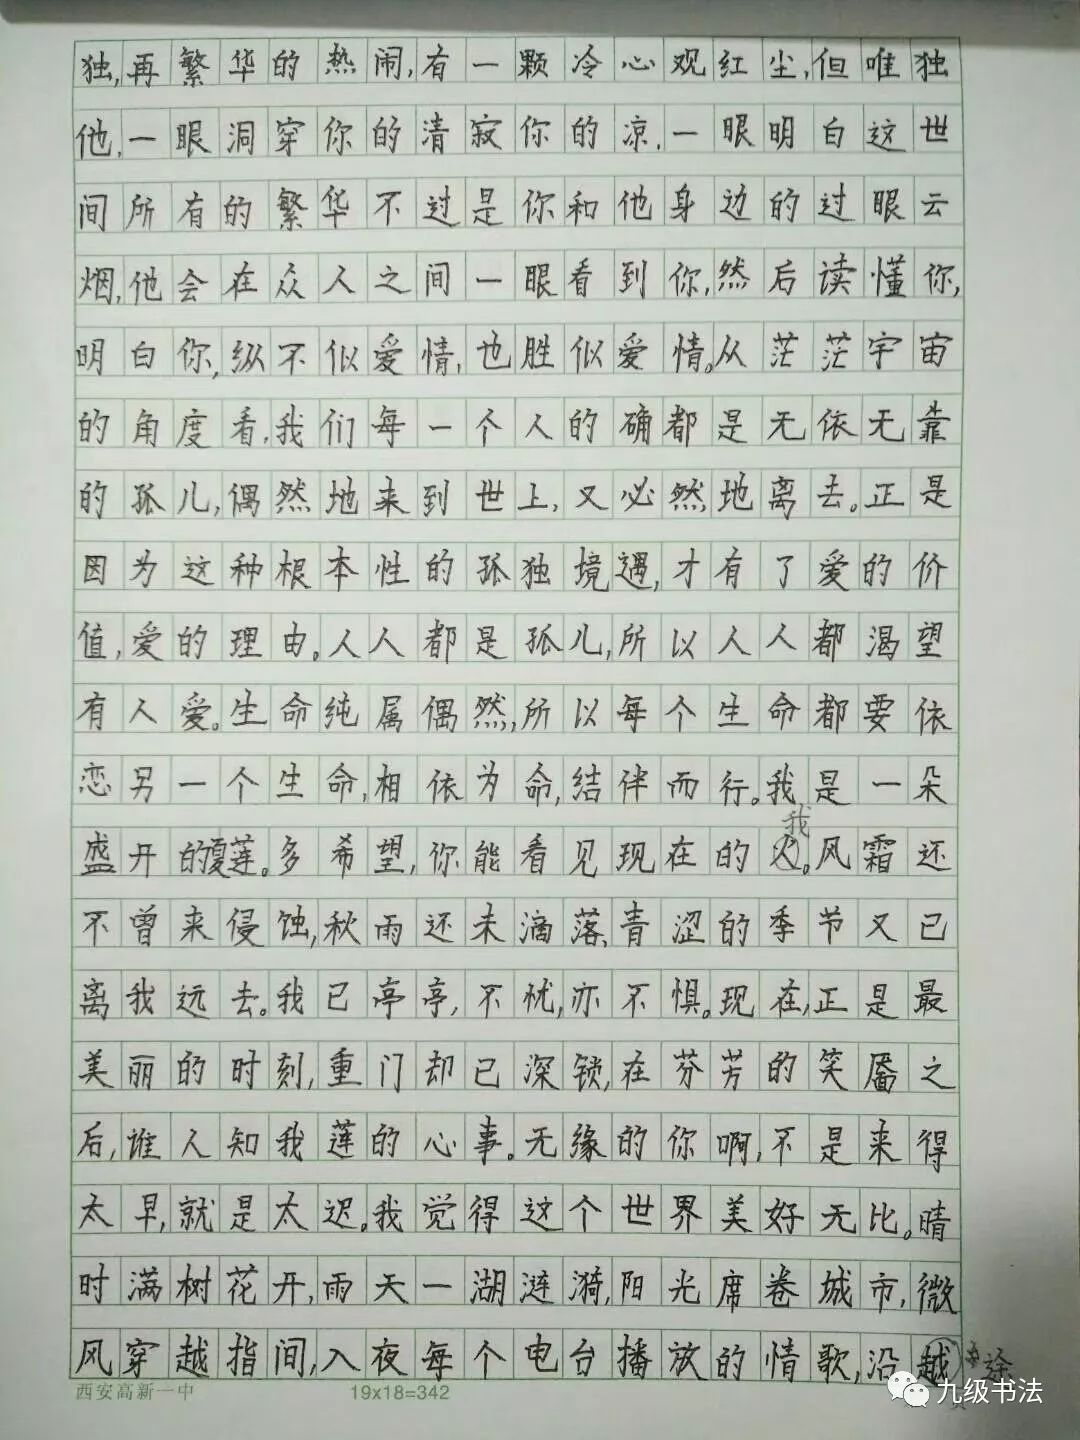 独,再繁华的热闹,有一颗冷心观红尘,但唯独
他,一眼洞穿你的清寂你的凉,一眼明白这世
间所有的繁华不过是你和他身边的过眼云
烟,他会在众人之间一眼看到你,然后读懂你,
明白你,纵不似爱情,也胜似爱情。从茫茫宇宙
的角度看,我们每一个人的确都是无依无靠
的孤儿,偶然地来到世上,又必然地离去。正是
因为这种根本性的孤独境遇,才有了爱的价
值,爱的理由。人人都是孤儿,所以人人都渴望
有人爱。生命纯属偶然,所以每个生命都要依
恋另一个生命,相依为命,结伴而行。我是一朵
盛开的夏莲。多希望,你能看见现在的我。风霜还
不曾来侵蚀,秋雨还未滴落,青涩的季节又已
离我远去。我已亭亭,不忧,亦不惧。现在,正是最
美丽的时刻,重门却已深锁,在芬芳的笑靥之
后,谁人知我莲的心事。无缘的你啊,不是来得
太早,就是太迟。我觉得这个世界美好无比。晴
时满树花开,雨天一湖涟漪,阳光席卷城市,微
风穿越指间,入夜每个电台播放的情歌,沿越途
西安高新一中 19x18=342
九级书法